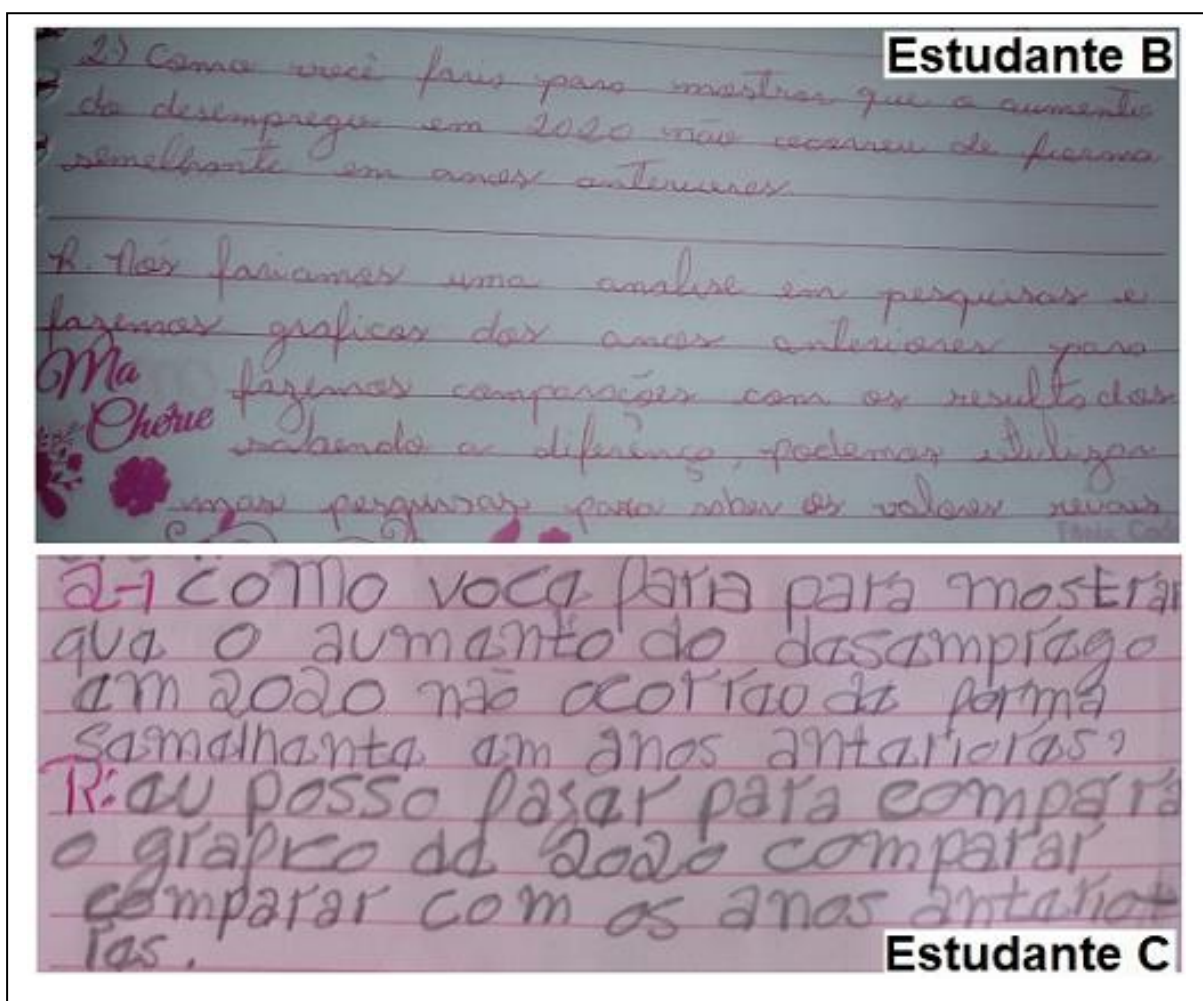 Estudante B
2) Como você faris para mostrar que o aumento
do desemprego em 2020 não ocorreu de forma
semelhante em anos anteriores.
R. Nós fariamos uma analise em pesquisas e
fazemos graficos dos anos anteriores para
Ma Chérie
fazemos comparações com os resultados
sabendo a diferença, podemos utulizar
mas pesquisas para saber os valores
2-) Como voce faria para mostrar
que o aumento do desemprego
em 2020 não ocorreo de forma
semelhante em anos anteriores?
R: eu posso fazer para compara
o grafico de 2020 comparar
comparar com os anos anterior
res.
Estudante C